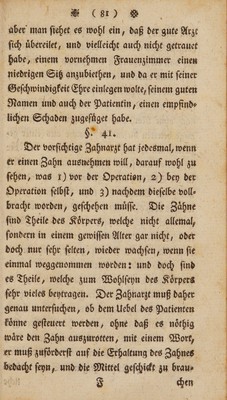 (81)
aber man siehet es wohl ein, daß der gute Arzt
sich übereilet, und vielleicht auch nicht getrauet
habe, einem vornehmen Frauenzimmer einen
niedrigen Sitz anzubiethen, und da er mit seiner
Geschwindigkeit Ehre einlegen wolte, seinem guten
Namen und auch der Patientin, einen empfind-
lichen Schaden zugefüget habe.
§. 41.
Der vorsichtige Zahnarzt hat jedesmal, wenn
er einen Zahn ausnehmen will, darauf wohl zu
sehen, was 1) vor der Operation, 2) bey der
Operation selbst, und 3) nachdem dieselbe voll-
bracht worden, geschehen müsse. Die Zähne
sind Theile des Körpers, welche nicht allemal,
sondern in einem gewissen Alter gar nicht, oder
doch nur sehr selten, wieder wachsen, wenn sie
einmal weggenommen worden: und doch sind
es Theile, welche zum Wohlseyn des Körpers
sehr vieles beytragen. Der Zahnarzt muß daher
genau untersuchen, ob dem Uebel des Patienten
könne gesteuert werden, ohne daß es nöthig
wäre den Zahn auszurotten, mit einem Wort,
er muß zuförderst auf die Erhaltung des Zahnes
bedacht seyn, und die Mittel geschickt zu brau-
F chen